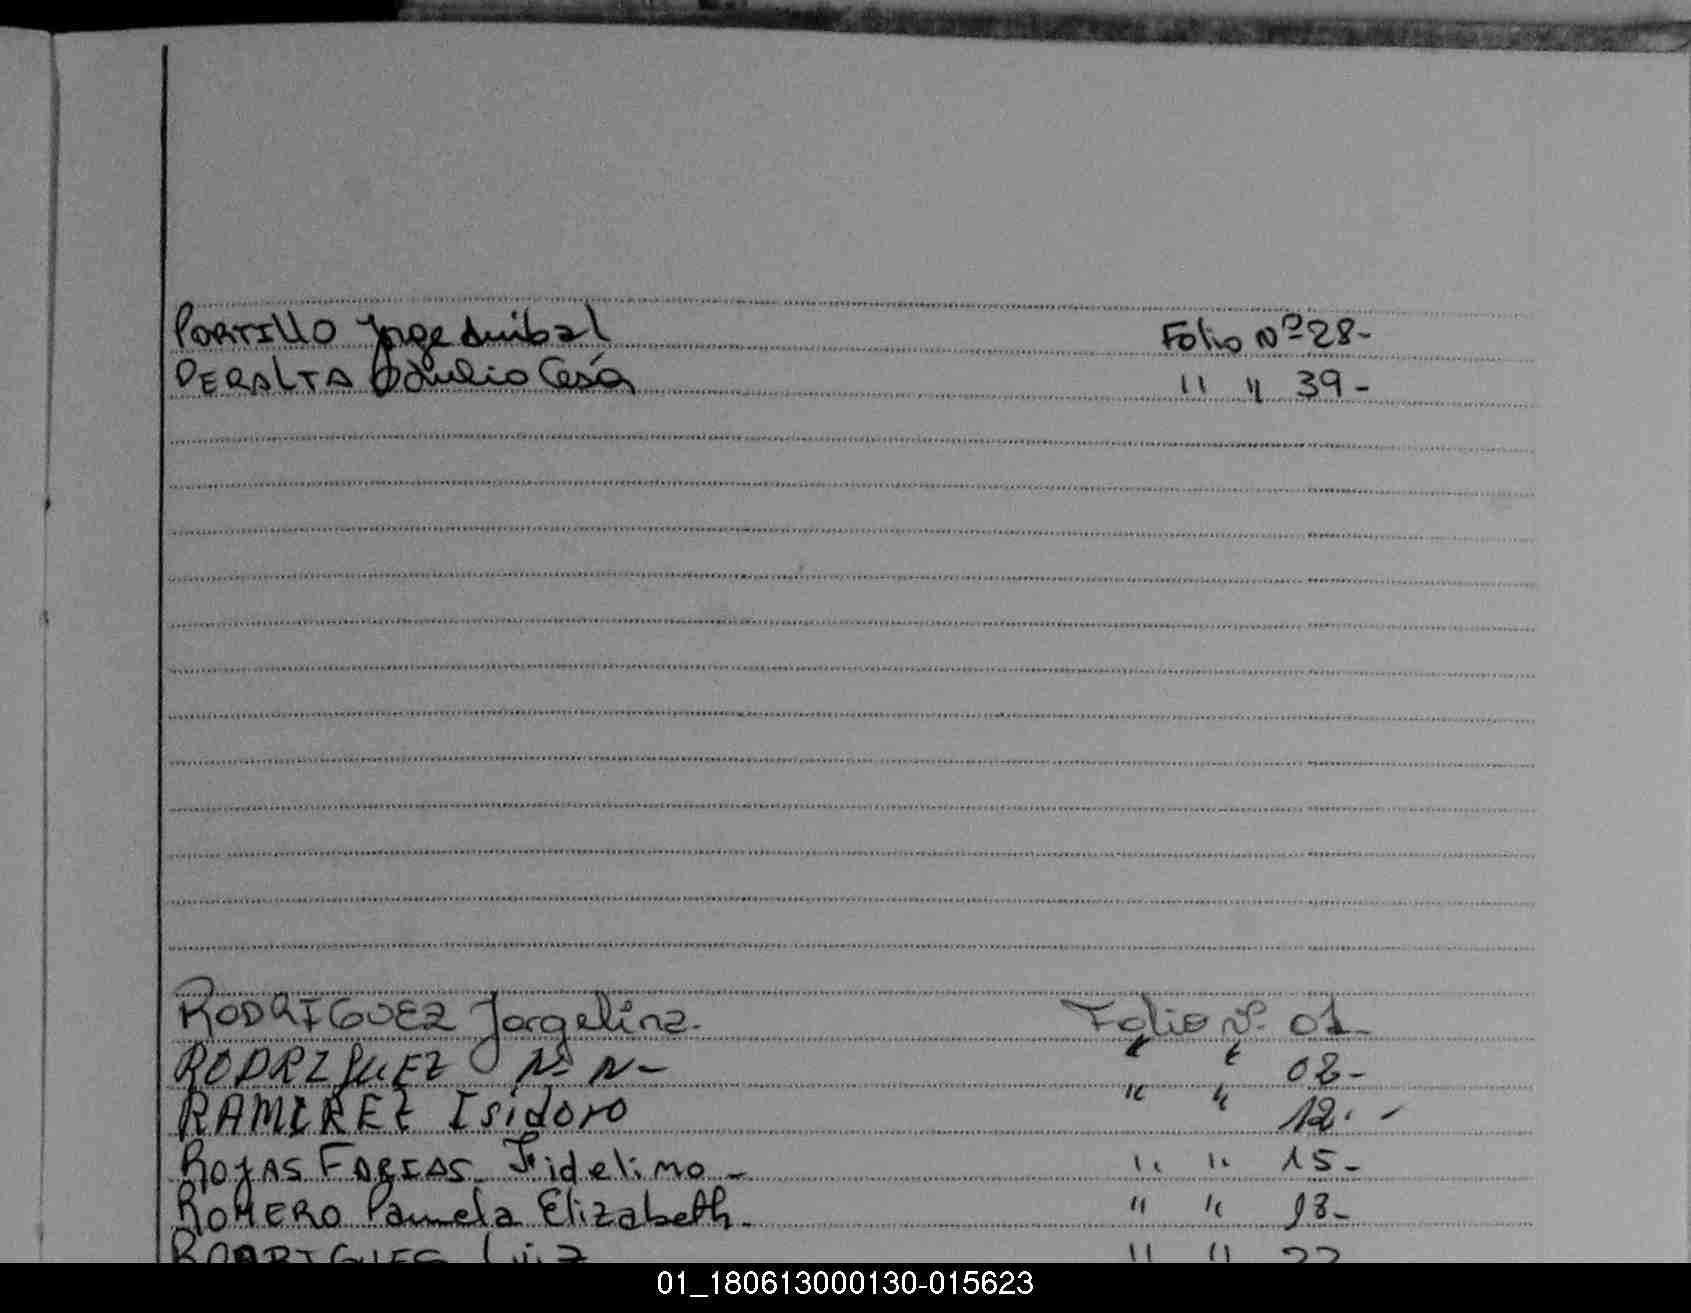 PORTILLO Jorge Anibal Folio Nº 28-
PERALTA Julio Cesár " " 39-
RODRIGUEZ Jorgelina. Folio Nº. 01-
RODRIGUEZ N- N- " " 08-
RAMIREZ Isidoro " " 12.-
ROJAS FARIAS Fidelino- " " 15-
ROMERO Pamela Elizabeth. " " 18-
RODRIGUES Luiz " " 22
01_180613000130-015623